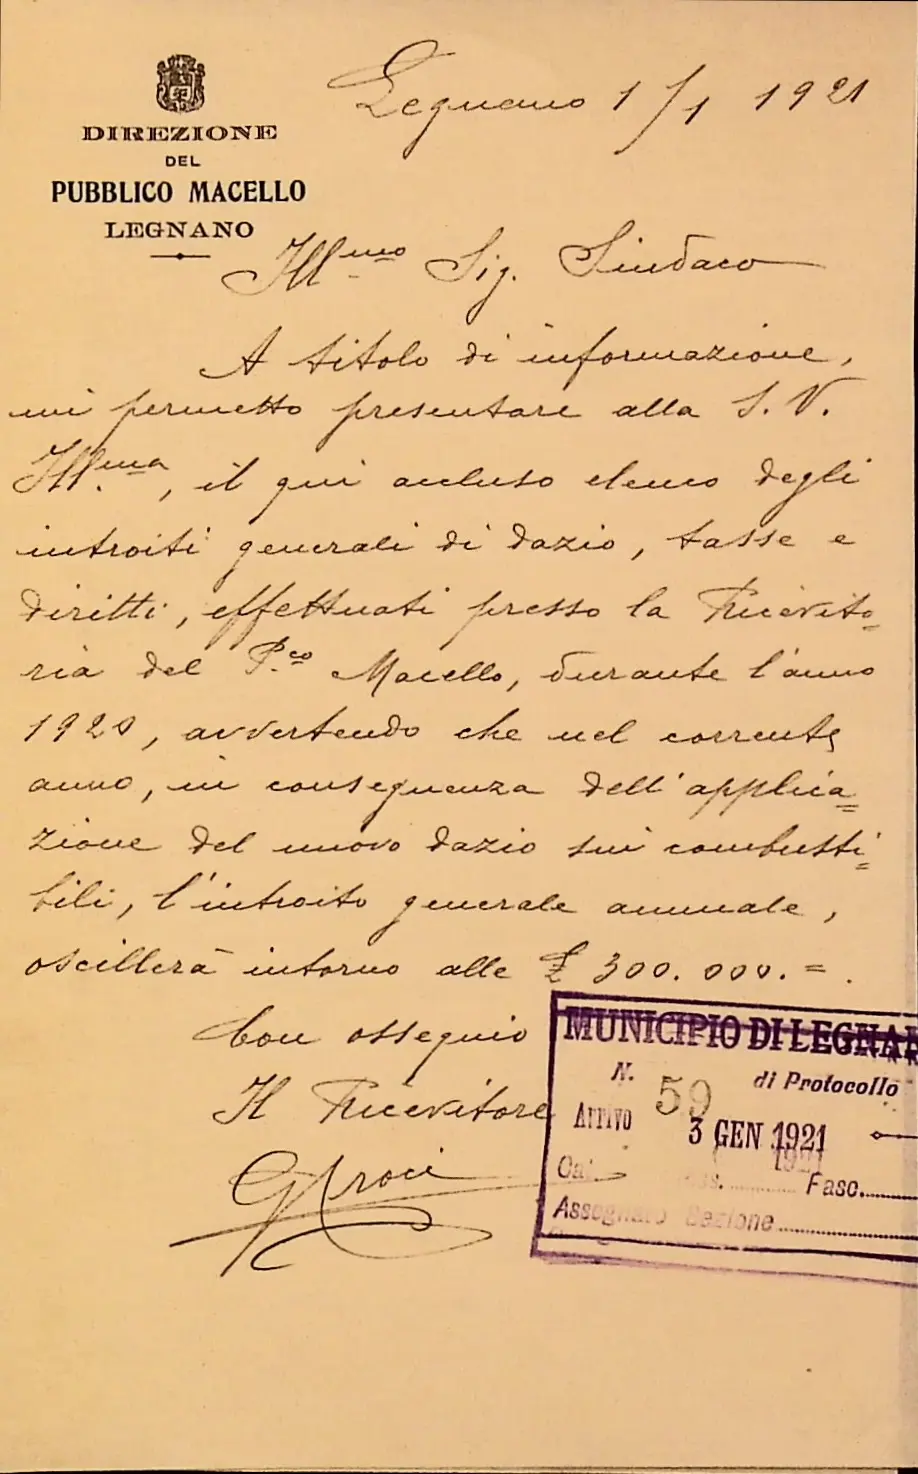 DIREZIONE
DEL
PUBBLICO MACELLO
LEGNANO
Legnano 1/1 1921
Ill.mo Sig. Sindaco
A titolo di informazione,
mi permetto presentare alla S. V.
Ill.ma, il qui accluso elenco degli
introiti generali di dazio, tasse e
diritti, effettuati presso la Ricevito=
ria del P.co Macello, durante l'anno
1920, avvertendo che nel corrente
anno, in conseguenza dell'applica=
zione del nuovo dazio sui combusti=
bili, l'introito generale annuale,
oscillerà intorno alle £ 300.000.=.
Con ossequio
Il Ricevitore
MUNICIPIO DI LEGNA
N. 59 di Protocollo
ARRIVO 3 GEN 1921
1921
Fasc.
Sezione